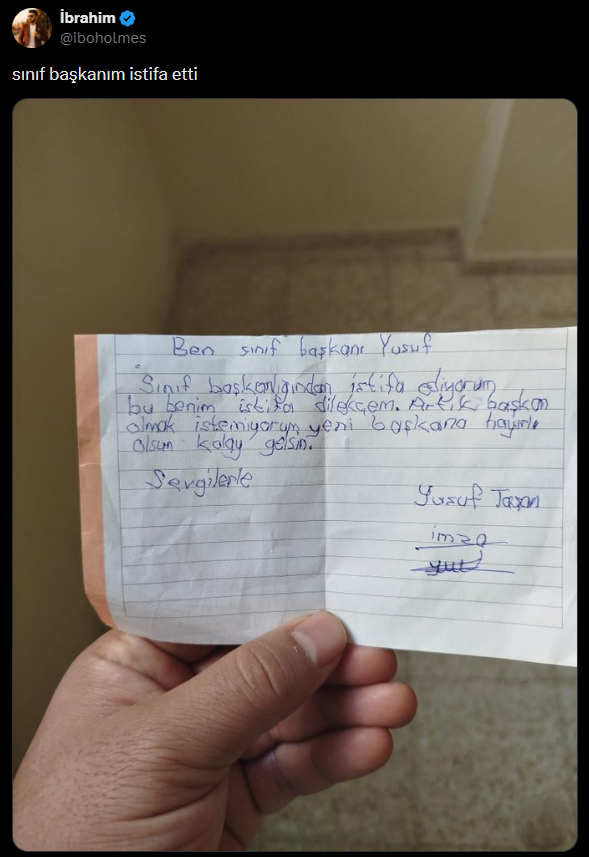 İbrahim
@iboholmes
sınıf başkanım istifa etti
Ben sınıf başkanı Yusuf
Sınıf başkanlığından istifa ediyorum
bu benim istifa dilekçem. Artık başkan
olmak istemiyorum yeni başkana hayırlı
olsun kolay gelsin.
Sevgilerle
Yusuf Taşan
imza